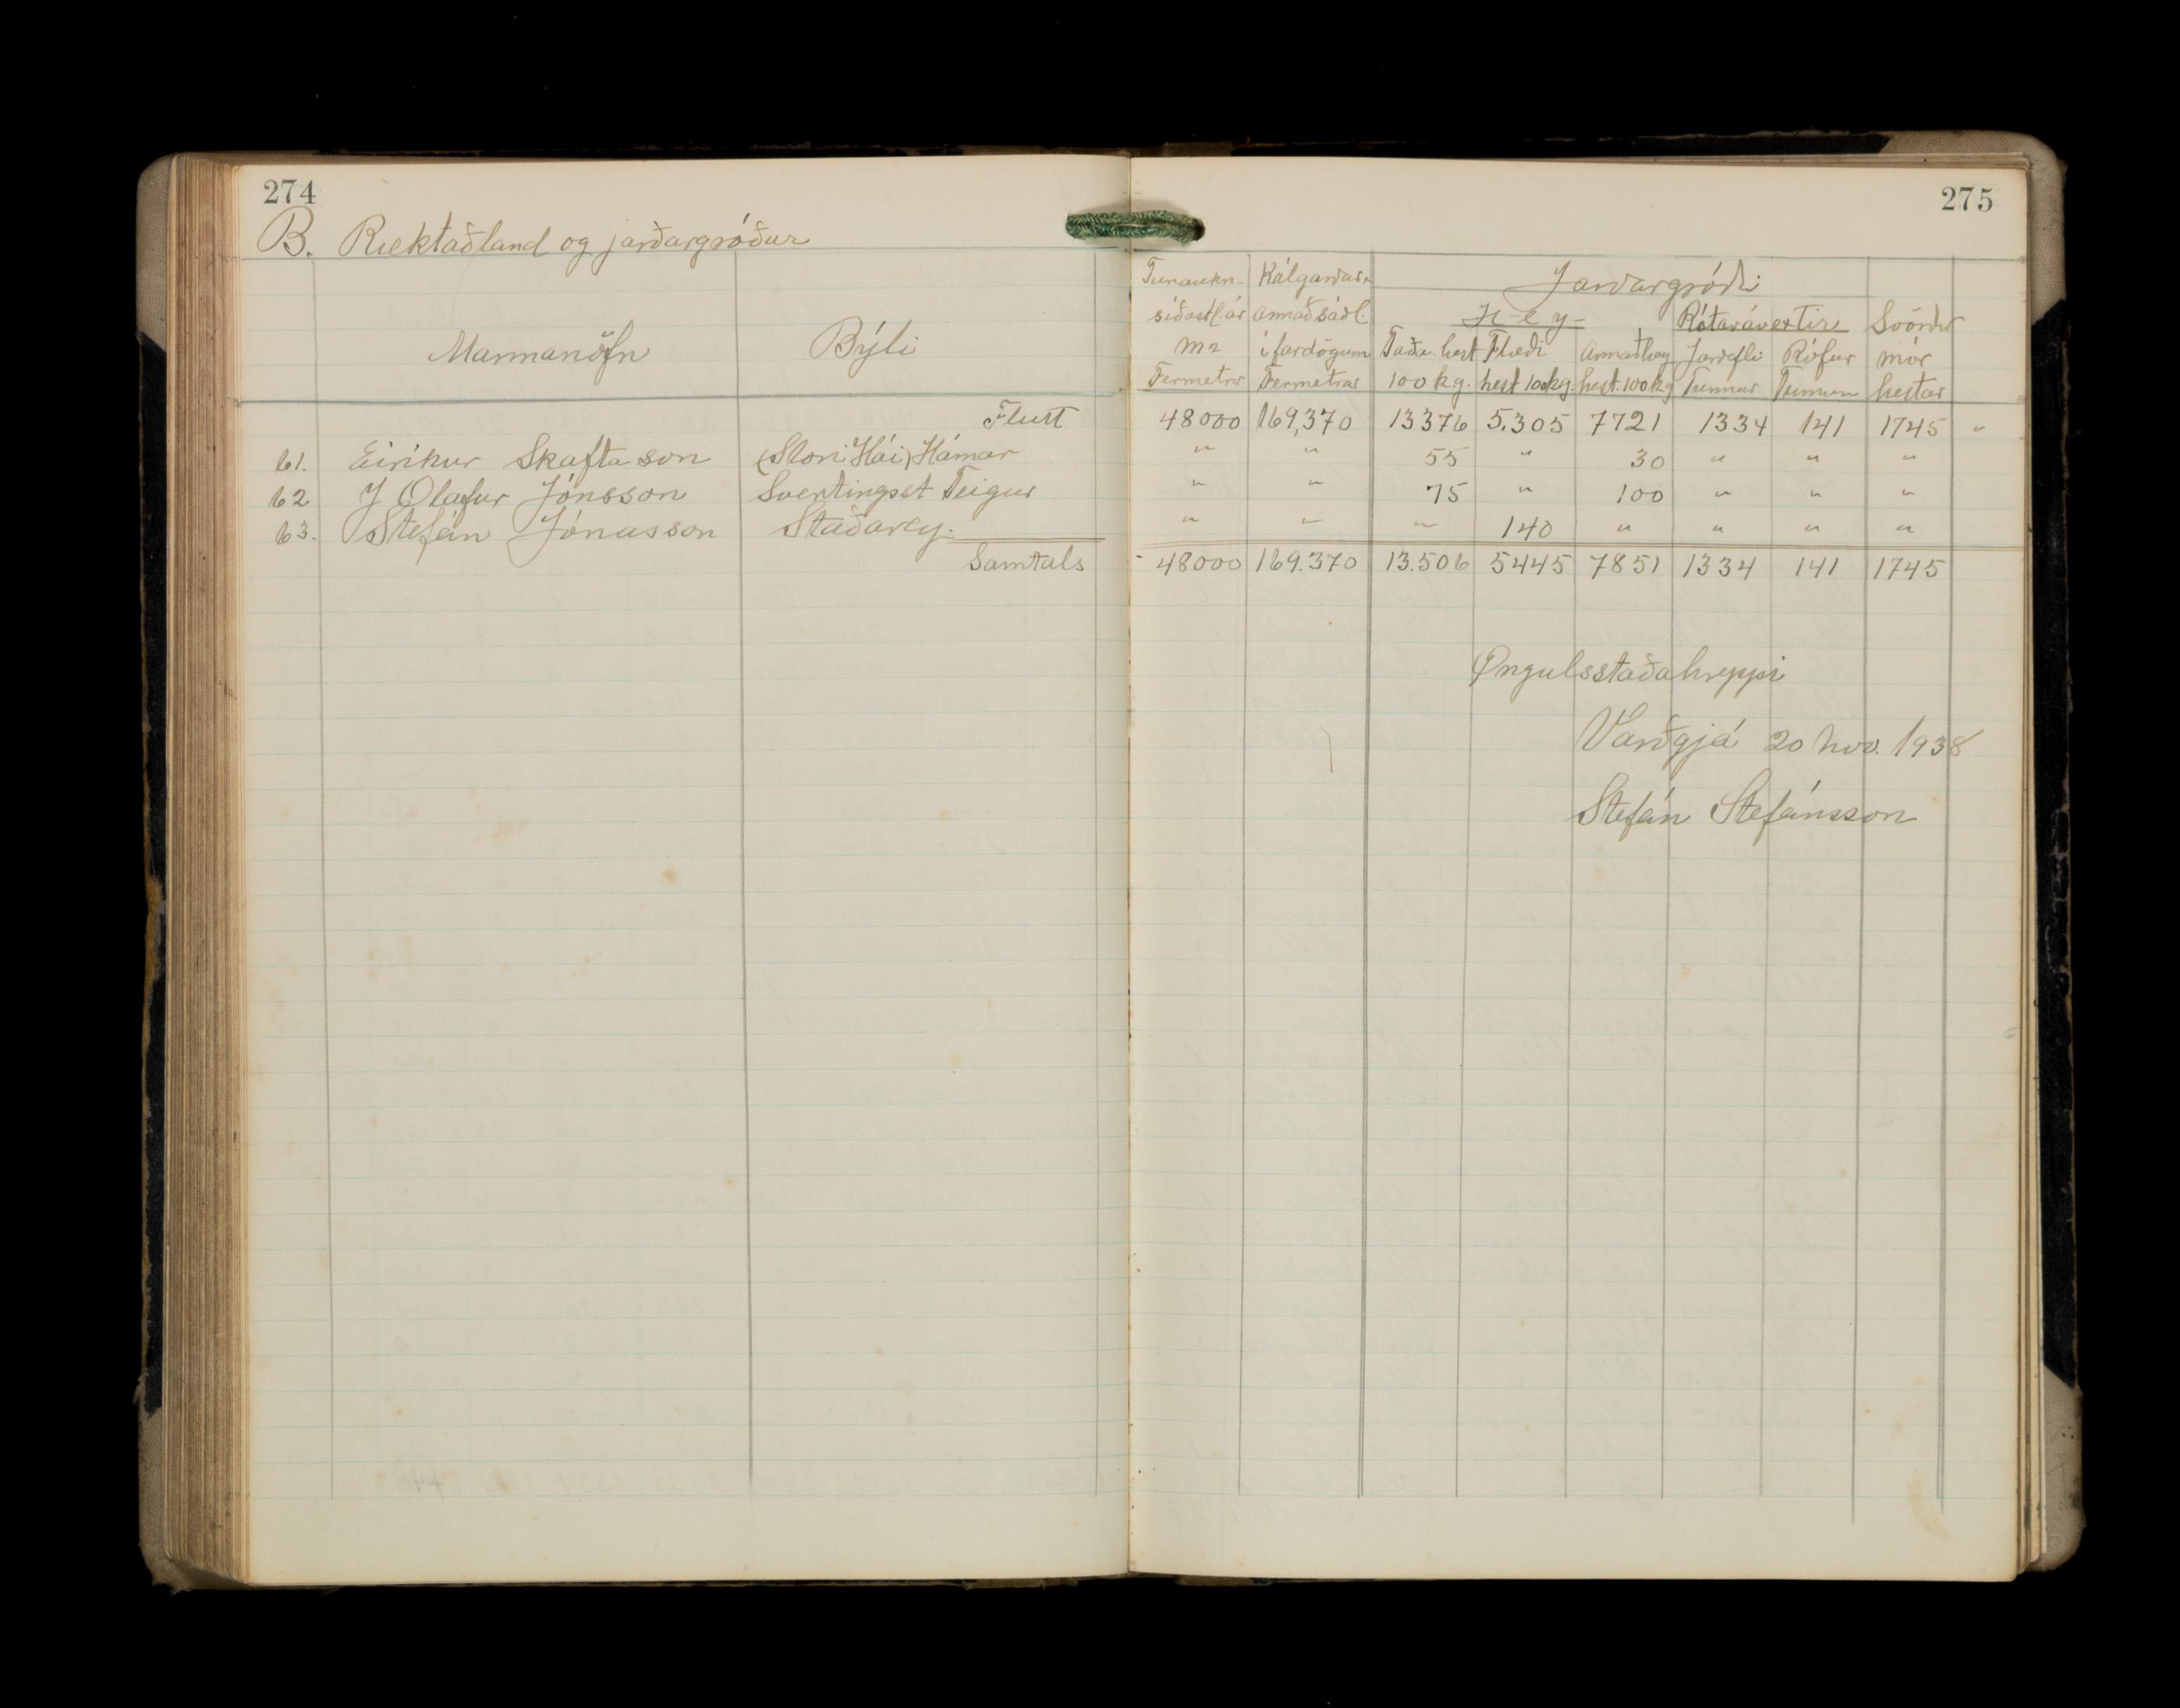 274
B. Ræktaðland og jarðargróður
Mannanöfn Býli
Flutt
61. Eiríkur Skaftason (Stóri Hái) Hámar
62 J Olafur Jónsson Sventingsst Teigur
63. Stefán Jónasson Staðarey.
Samtals
275
Tunaukn. síðastl. ár m2 Fermetrar
Kálgarðar annað sáðl. í fardögum Fermetrar
Jarðargróði
Hey Rótarávextir Svörður
Taða hest 100 kg. Flæði hest 100 kg. Annað hey hest. 100 kg Jarðepli Tunnur Rófur Tunnur mór hestar
48000 169,370 13376 5.305 7721 1334 141 1745 "
" " 55 " 30 " " "
" " 75 " 100 " " "
" " " 140 " " " "
48000 169.370 13.506 5445 7851 1334 141 1745
Öngulsstaðahreppi
Varðgjá 20 nóv. 1938
Stefán Stefánsson